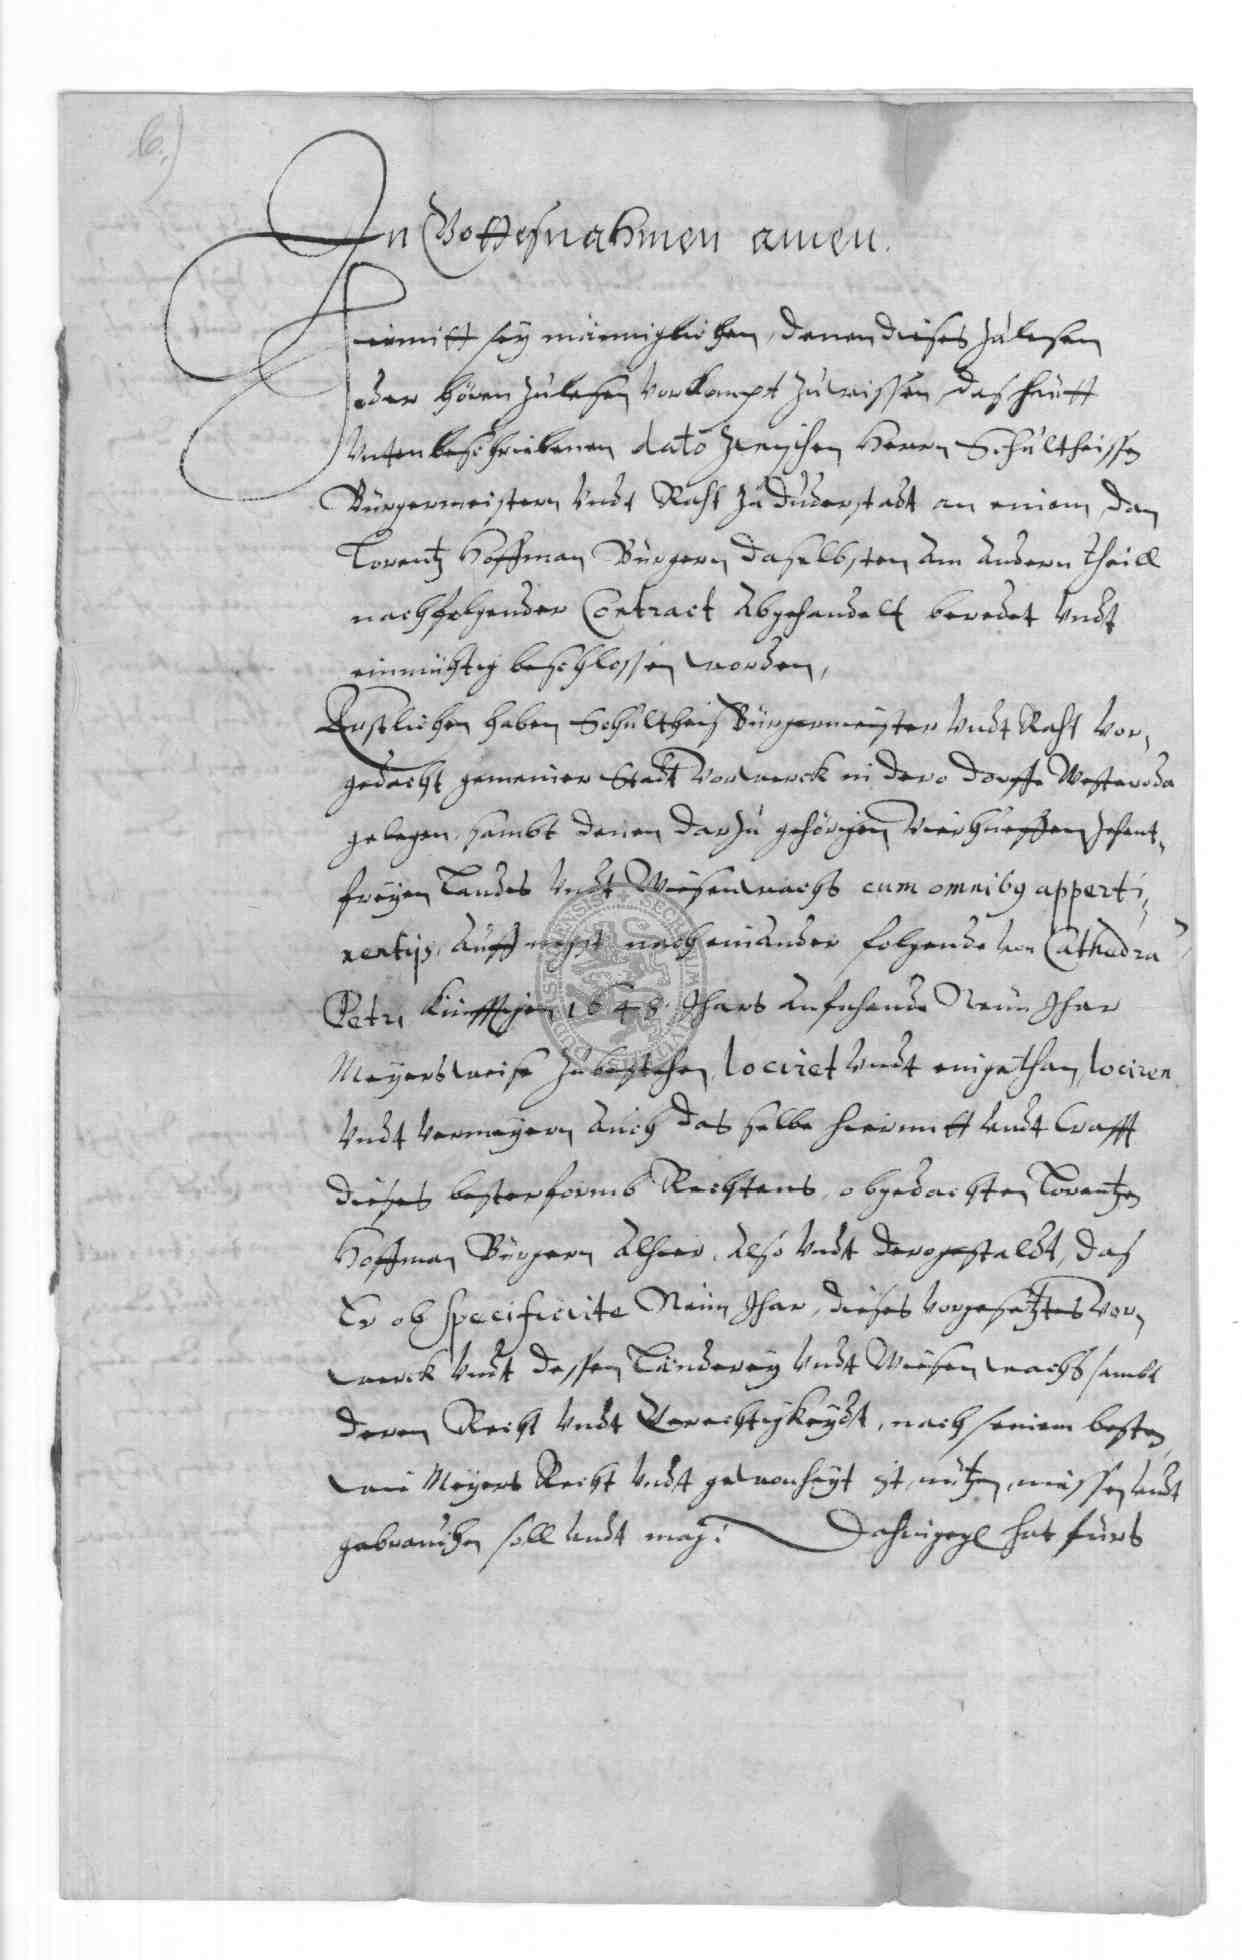 6.)
In Gottesnahmen amen.
Hiermitt sey männiglichen, denen dieses zu lesen
oder hören zulesen vorkompt zuwissen, das heütt
Unten beschriebenen dato zwischen Herrn Schultheissen
Bürgermeistern Undt Raht zu Duderstadt an einem, dan
Lorentz Hoffman Bürgern daselbsten am andern theill
nachfolgender Contract abgehandelt beredet Undt
einmühtig beschlossen worden,
Erstlichen haben Schultheis Bürgermeister Undt Raht vor-
gedacht gemeiner Stadt Vorwerck in dero dorffe Westeroda
gelegen, sambt denen darzu gehörigen vier hueffen zehent-
freyen Landes Undt Wiesenwachs cum omnibus apperti-
nentijs, auff negst nach einander folgende von Cathedra
Petri künfftigen 1648. Jhars anfahende Neun Jhar
Meyersweise zubestehen, lociret Undt eingethan, lociren
Undt vermeyern auch das selbe hiermitt Undt Crafft
dieses bester formb Rechtens, obgedachten Lorentzen
Hoffman Bürgern alhier, also Undt derogestaldt, das
Er ob specificirte Neun Jhar, dieses vorgesetztes Vor-
werck Undt dessen Länderey Undt Wiesenwachs sambt
deren Recht Undt Gerechtigkeydt, nach seinem besten
wie Meyers Recht Undt gewonheyt ist, nutzen, niessen Undt
gebrauchen soll Undt mag: Dahingegen hat fürs